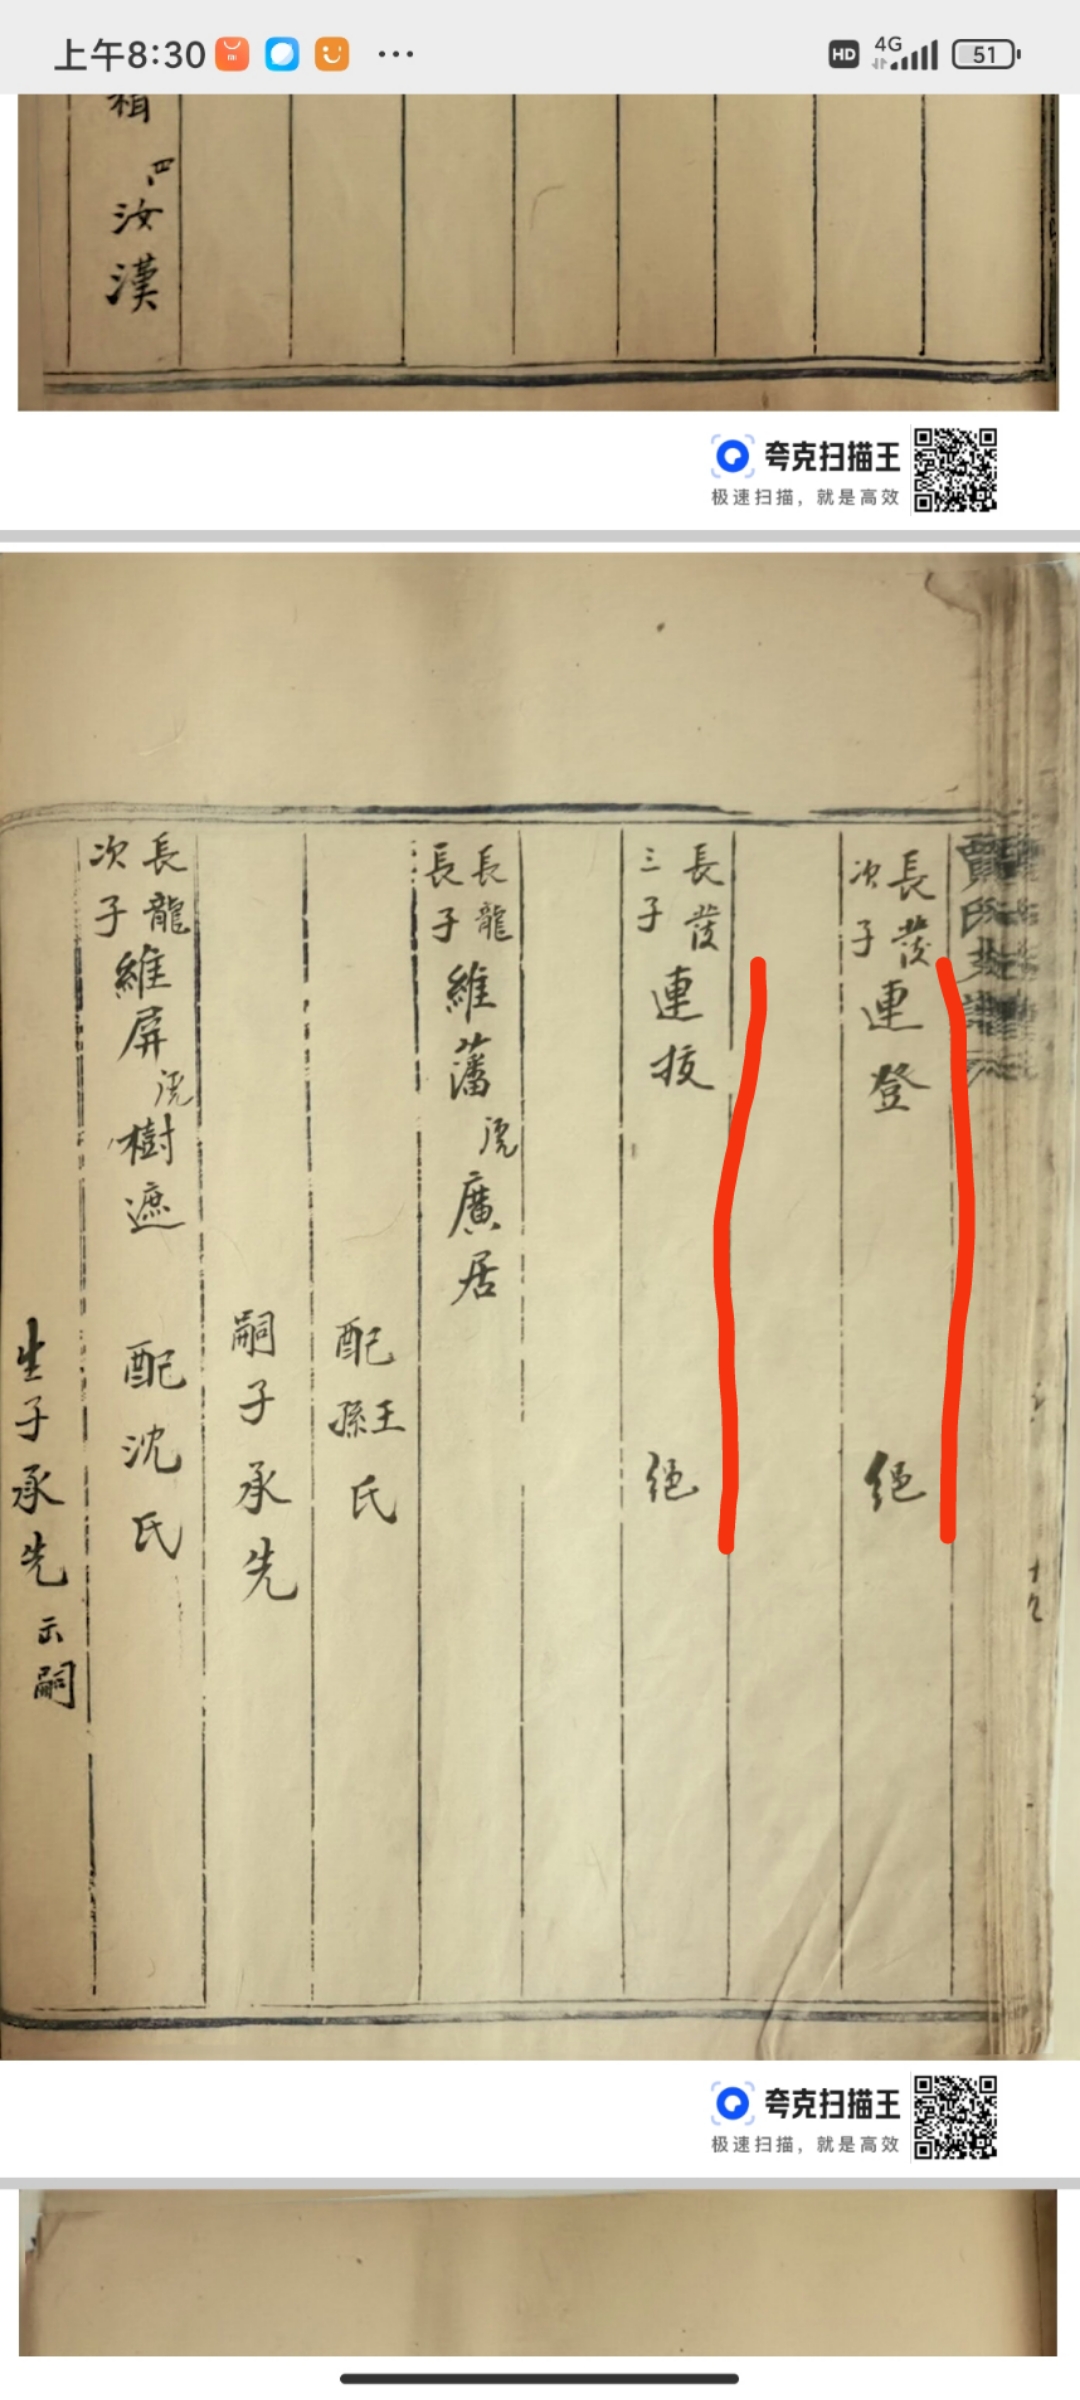 上午8:30
HD 4G 51
四
汝漢
夸克扫描王
极速扫描，就是高效
長發
次子
連登
絕
長發
三子
連抜
絕
長龍
長子
維藩
流
廣居
配
王
孫
氏
嗣子承先
長龍
次子
維屏
流
樹遮
配沈氏
生子承先
出嗣
夸克扫描王
极速扫描，就是高效